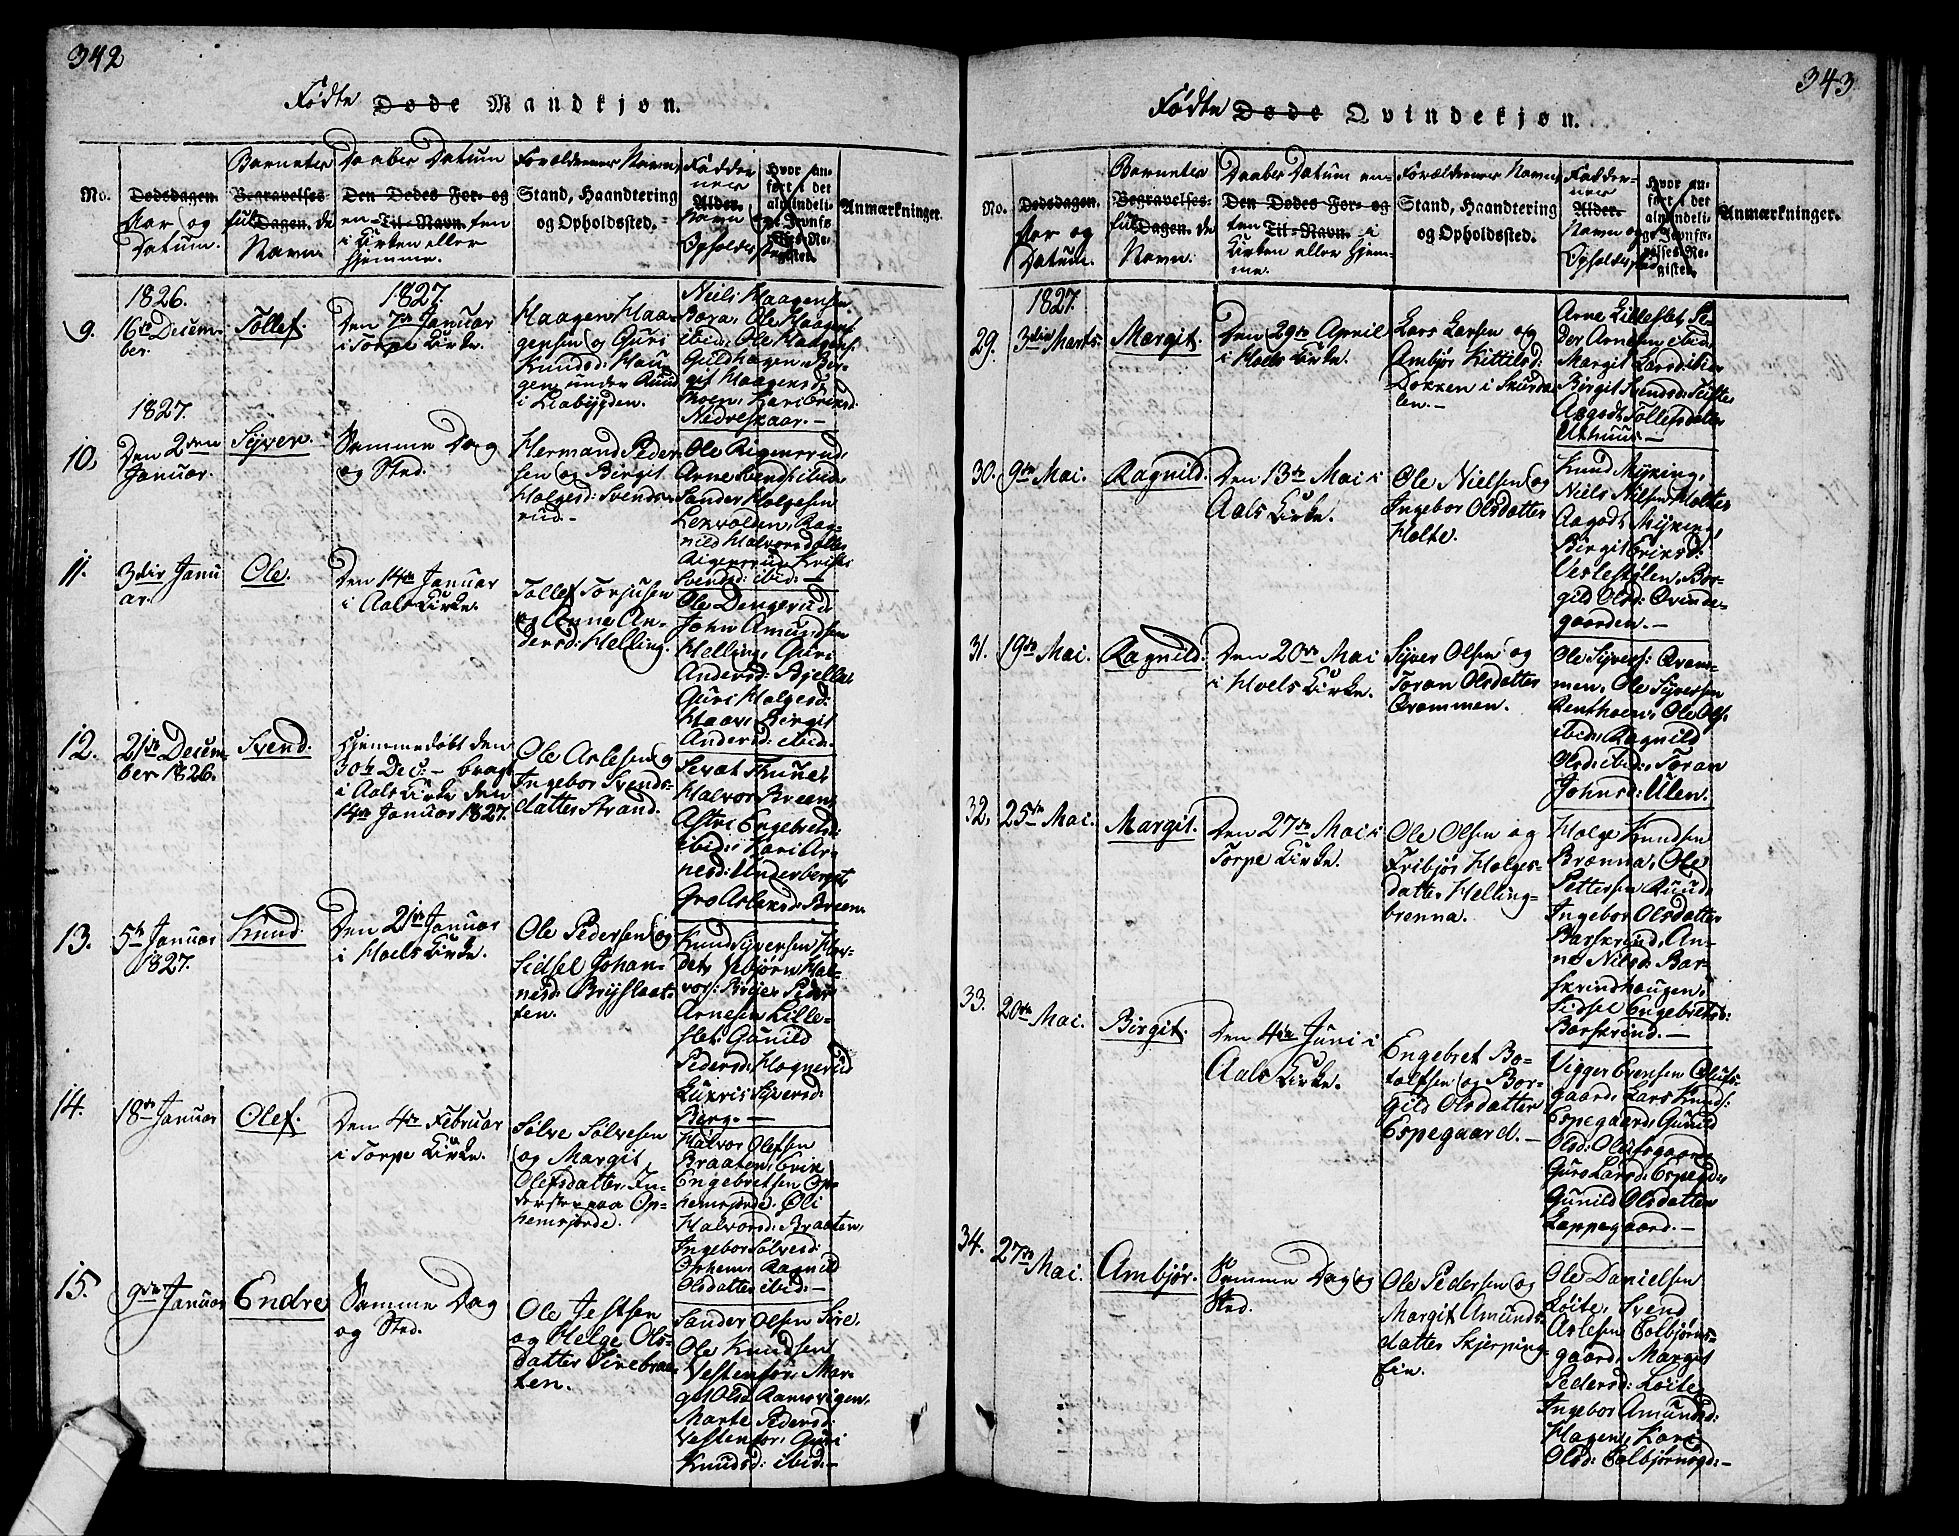 342
Fødte Døde Mandkjøn.
No.
Dødsdagen.
Aar og
Datum.
Barnets
Begravelses-
fulde Dagen.
Navn.
Daabes Datum
Den Dødes For- og
en Til-Navn. ten
i Kirken eller
hjemme.
Forældrenes Navn,
Stand, Haandtering
og Opholdssted.
Faddernes
Alder.
Navn og
Opholdssted
Hvor an-
ført i det
almindeli-
ge Jevnfø-
relses-Re-
gister.
Anmærkninger.
9.
1826.
16de Decem-
ber.
Tollef.
1827.
Den 7de Januar
i Torpe Kirke.
Haagen Haa-
gensen og Guri
Knudsd: Hau-
gen under Ruud
i Liabygden.
Niels Haagensen
Bera, Ole Haagens:
ibid, Ole Haagens:
Gildhagen, Bir-
git Haagensd:
Moen, Kari Eriksd:
Nedreskaar.-
10.
1827.
Den 2den
Januar.
Syver.
Samme Dag
og Sted.
Hermand Peder-
sen og Birgit
Holgesd: Svends-
rud-
Ole Rigensrud,
Arne Svends: ibid,
Sander Holgesen
Lenvolden, Rag-
nild Halvorsdatter
Rigensrud, Kristi
Svendsd: ibid:-
11.
3die Janu-
ar.
Ole.
Den 14de Januar
i Aals Kirke.
Tollef Torjusen
og Anne An-
dersd: Helling.
Ole Dengerud,
John Amundsen
Helling, Guri
Andersd: Bjella,
Guri Holgesd:
Haave, Birgit
Andersd: ibid.-
12.
21de Decem-
ber 1826.
Svend.
Hjemmedøbt den
30te Dec:- bragt
i Aals Kirke den
14de Januar 1827.
Ole Aslesen og
Ingebor Svends-
datter Strand.
Sevat Tunet
Halvor Breen,
Astri Engebretsd:
ibid:, Kari Ar-
nesd: Underberget
Gro Aslaksd: Breen
13.
5te Januar
1827.
Knud.
Den 21de Januar
i Hoels Kirke.
Ole Pedersen og
Sidsel Johan-
nesd: Brydslaat-
ten.
Knud Syversen Hov-
det, Asbjørn Hal-
vors: Birger, Peder
Arnesen Lille-
slet, Gunild
Pedersd: Hognerud
Kukris Syversd:
Berg.-
14.
18de Januar
Olef.
Den 4de Februar
i Torpe Kirke.
Sølve Sølvesen
og Margit
Olefsdatter In-
derster paa Op-
hemsjorde.
Halvor Olefsen
Braaten, Erik
Engebretsen Op-
hemsjorde, Oli
Halvorsd: Braaten,
Ingebor Sølvesd:
Ophem, Ragnild
Olsdatter ibid:-
15.
9de Januar
Endre
Samme Dag
og Sted.
Ole Jestsen
og Helge Ols-
datter Sirebraa-
ten.
Sander Olsen Sire,
Ole Knudsen
Vestenfor, Mar-
git Olsd: Ramsvigen,
Marte Pedersd:
Vestenfor, Guri
Knudsd: ibid:-
343
Fødte Døde Qvindekjøn.
No.
Dødsdagen.
Aar og
Datum.
Barnets
Begravelses-
fulde Dagen.
Navn.
Daabes Datum en-
Den Dødes For- og
ten Til-Navn. i
Kirken eller hjem-
me.
Forældrenes Navn,
Stand, Haandtering
og Opholdssted.
Fadder-
nes
Alder.
Navn og
Opholdssted
Hvor an-
ført i det
almindeli-
ge Jevnfø-
relses-Re-
gister.
Anmærkninger.
29.
1827.
3die Marts.
Margit.
Den 29de April
i Hoels Kirke.
Lars Larsen og
Ambjør Kittilsd:
Lokken i Skurda-
len.-
Arne Lilleslet, Pe-
der Arnesen ibid:
Margit Larsd: ibid:
Birgit Knudsd: Tufte
Aagodt Tollefsdatter
Uthuus.-
30.
9de Mai.
Ragnild.
Den 13de Mai i
Aals Kirke.
Ole Nielsen og
Ingebor Olsdatter
Holte.
Knud Myking,
Niels Nilsen Holte,
Aagodt Myking,
Birgit Eriksd:
Veslestølen, Bor-
gild Olsd: Qvinde-
gaarden.-
31.
19de Mai.
Ragnild.
Den 20de Mai
i Hoels Kirke.
Syver Olsen og
Toran Olsdatter
Qvammen.
Ole Syvers: Qvam-
men, Ole Syversen
Renthoen, Ole Ols:
ibid, Ragnild
Olsd: ibid:, Toran
Johnsd: Ulen.
32.
25de Mai.
Margit.
Den 27de Mai i
Torpe Kirke.
Ole Olsen og
Fribjør Holges-
datter Helling-
brenna.
Holge Knudsen
Brenna, Ole
Pettersen Ruud,
Ingebor Olsdatter
Barskrind, An-
ne Nilsd: Bar-
skrindhaugen,
Sidsel Engebretsd:
Barskrind.-
33.
20de Mai.
Birgit.
Den 4de Juni i
Aals Kirke.
Engebret Bo-
tolfsen og Bor-
gild Olsdatter
Espegaard.-
Vigger Evensen Olufs-
gaard, Lars Knuds:
Espegaard, Gunild
Olsd: Olufsgaard,
Guro Larsd: Espegd:,
Gunild Olsdatter
Lappegaard.-
34.
27de Mai.
Ambjør.
Samme Dag og
Sted.
Ole Pedersen og
Margit Amunds-
datter Skjerping-
Eie.
Ole Danielsen
Løite, Svend
Aslesen Tolbjørns-
gaard, Margit
Pedersd: Løite,
Ingebor Amundsd:
Hagen, Kari
Olsd: Tolbjørnsgd:-